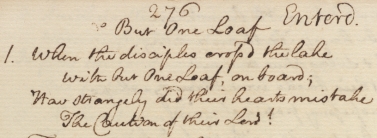 276
But One Loaf Enterd.
1. When the disciples cross'd the lake
With but One Loaf, on board;
How strangely did their hearts mistake
The Caution of their Lord!